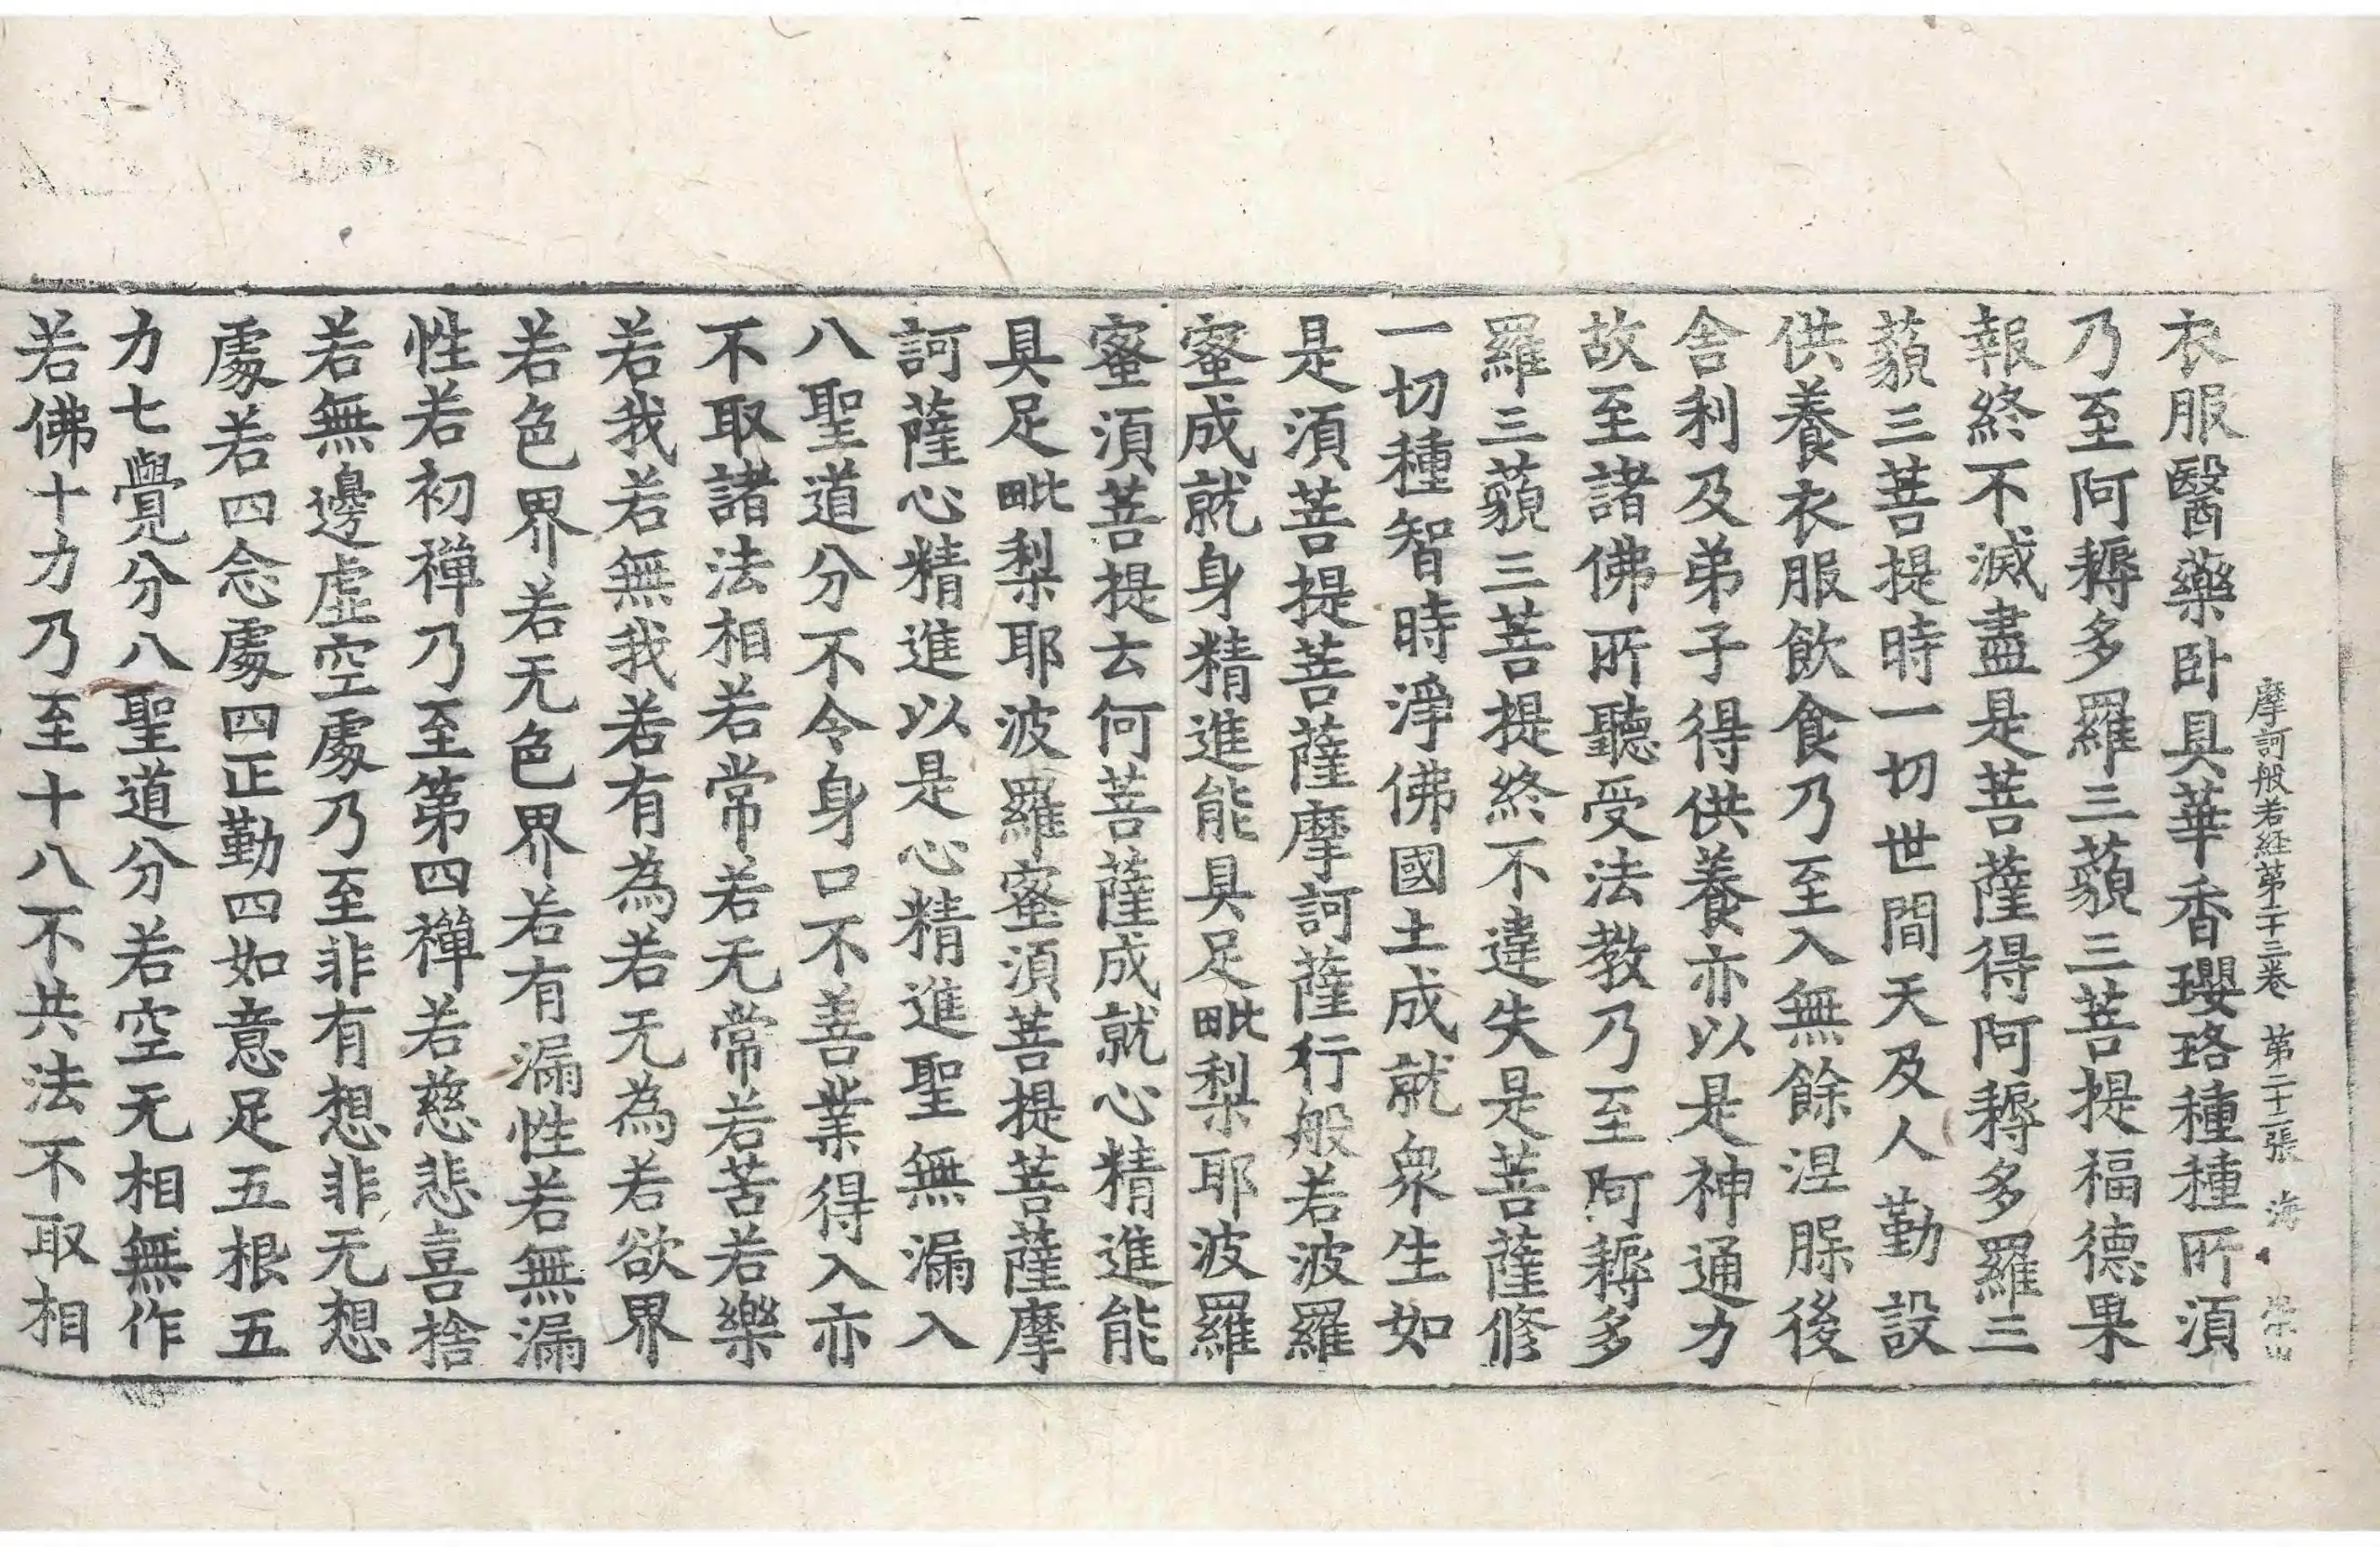 摩訶般若経第二十三卷 第二十二張 海
衣服醫藥卧具華香瓔珞種種所須
乃至阿耨多羅三藐三菩提福德果
報終不滅盡是菩薩得阿耨多羅三
藐三菩提時一切世間天及人勤設
供養衣服飲食乃至入無餘涅槃後
舍利及弟子得供養亦以是神通力
故至諸佛所聽受法教乃至阿耨多
羅三藐三菩提終不違失是菩薩修
一切種智時淨佛國土成就衆生如
是須菩提菩薩摩訶薩行般若波羅
蜜成就身精進能具足毗梨耶波羅
蜜須菩提云何菩薩成就心精進能
具足毗梨耶波羅蜜須菩提菩薩摩
訶薩心精進以是心精進聖無漏入
八聖道分不令身口不善業得入亦
不取諸法相若常若无常若苦若樂
若我若無我若有為若无為若欲界
若色界若无色界若有漏性若無漏
性若初禅乃至第四禪若慈悲喜捨
若無邊虛空處乃至非有想非无想
處若四念處四正勤四如意足五根五
力七覺分八聖道分若空无相無作
若佛十力乃至十八不共法不取相